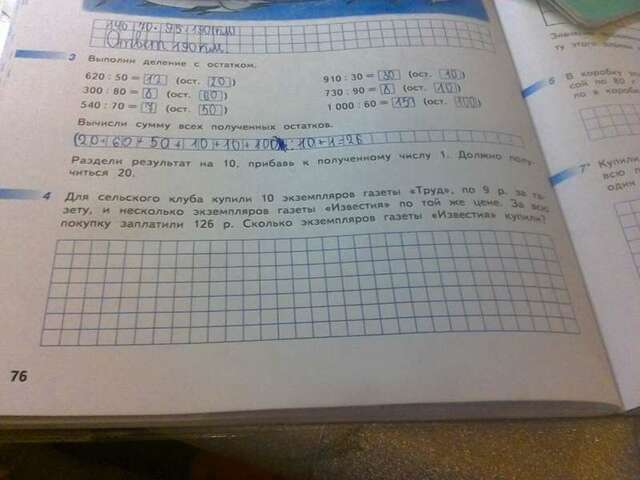 Ответ 190 км.
3 Выполни деление с остатком.
620 : 50 = 12 (ост. 20)
300 : 80 = 8 (ост. 60)
540 : 70 = 7 (ост. 50)
910 : 30 = 30 (ост. 10)
730 : 90 = 8 (ост. 10)
1 000 : 60 = 15 (ост. 100)
Вычисли сумму всех полученных остатков.
(20+60+50+10+10+100) : 10+1=26
Раздели результат на 10, прибавь к полученному числу 1. Должно полу-
читься 20.
4 Для сельского клуба купили 10 экземпляров газеты «Труд», по 9 р. за га-
зету, и несколько экземпляров газеты «Известия» по той же цене. За всю
покупку заплатили 126 р. Сколько экземпляров газеты «Известия» купили?
76
ту этого
6 В коробку
сой по 80
ло в короб
7* Купили
всю п
один